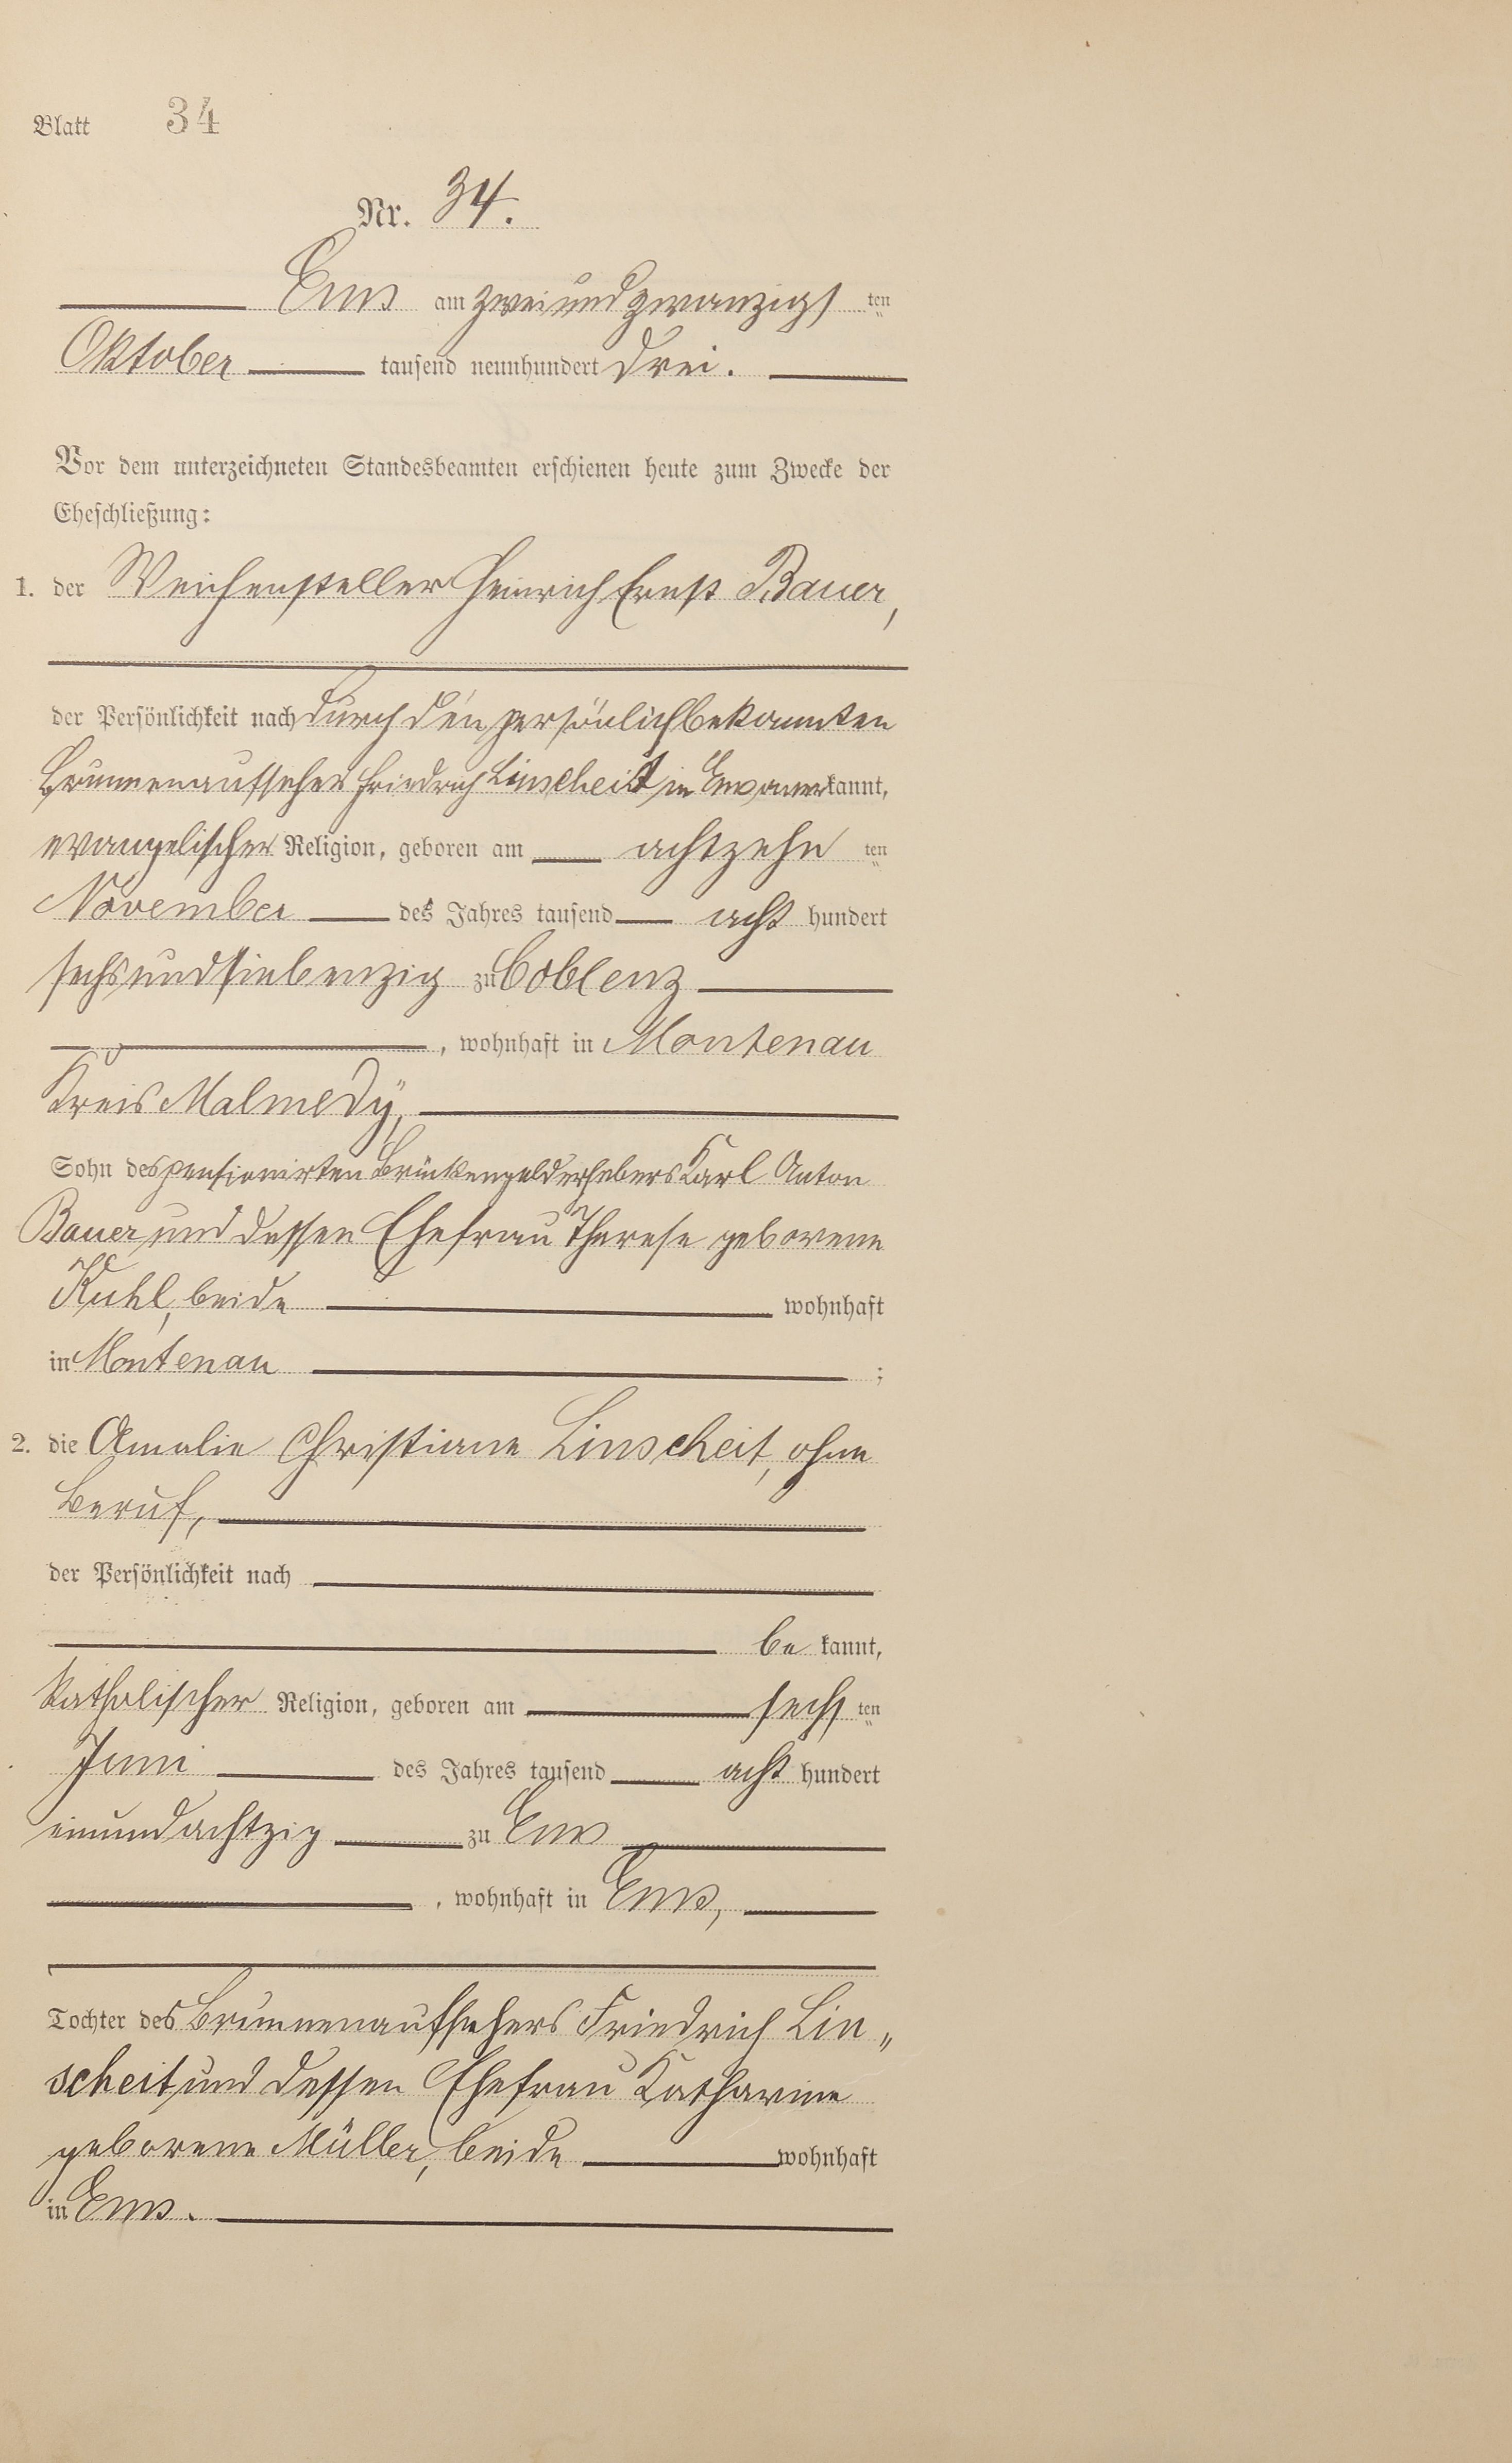 Blatt 34
Nr. 34.
Ems am zweiundzwanzigs ten
Oktober tausend neunhundert drei.
Vor dem unterzeichneten Standesbeamten erschienen heute zum Zwecke der
Eheschließung:
1. der Weichensteller Heinrich Ernst Bauer,
der Persönlichkeit nach durch den persönlich bekannten
Brunnenaufseher Friedrich Linscheid in Ems anerkannt,
evangelischer Religion, geboren am achtzehn ten
November des Jahres tausend acht hundert
sechsundsiebenzig zu Coblenz
, wohnhaft in Montenau
Kreis Malmedÿ,
Sohn des pensionirten Brückengelderhebers Karl Anton
Bauer und dessen Ehefrau Therese geborene
Kuhl, beide wohnhaft
in Montenau ;
2. die Amalie Christiane Linscheit, ohne
Beruf,
der Persönlichkeit nach
be kannt,
katholischer Religion, geboren am sechs ten
Juni des Jahres tausend acht hundert
einundachtzig zu Ems
, wohnhaft in Ems,
Tochter des Brunnenaufsehers Friedrich Lin„
scheit und dessen Ehefrau Katharine
geborene Müller, beide wohnhaft
in Ems.